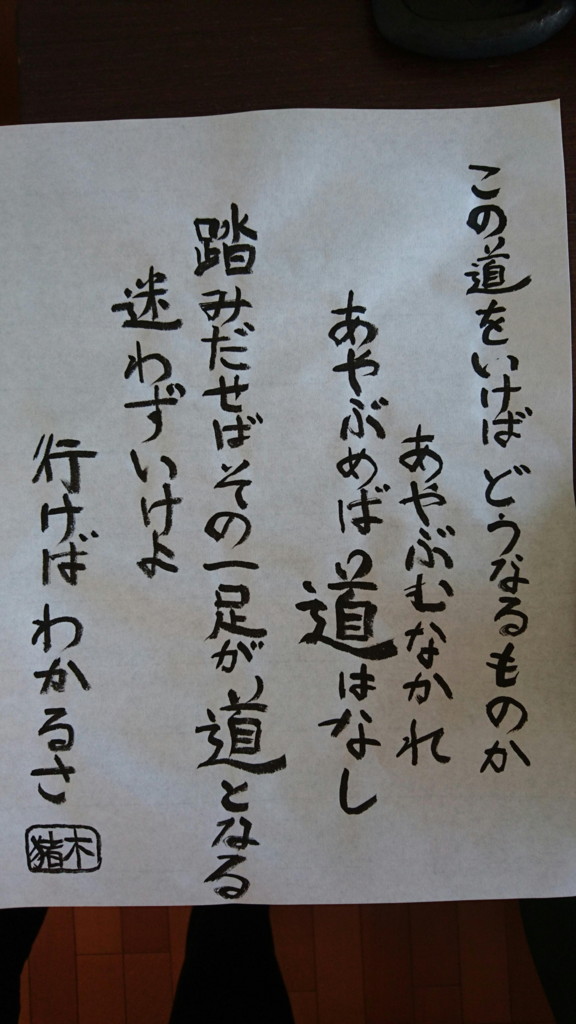 この道をいけば どうなるものか
あやぶむなかれ
あやぶめば 道はなし
踏みだせば その一足が 道となる
迷わずいけよ
行けば わかるさ
猪木